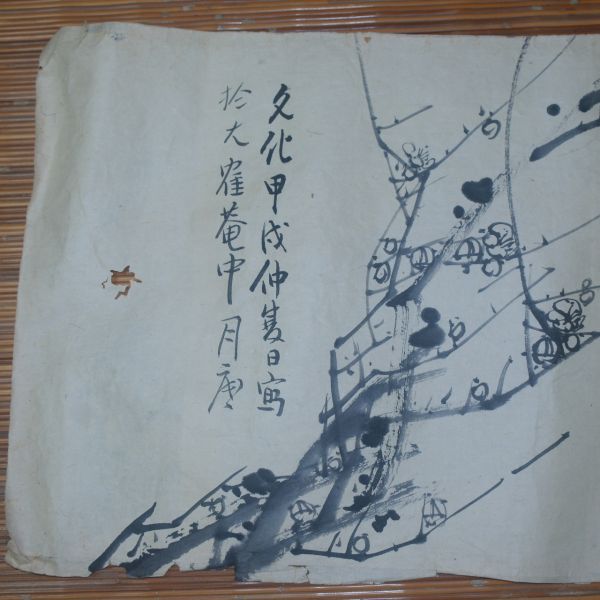 文化甲戌仲夏日寫
於大寉菴中 月